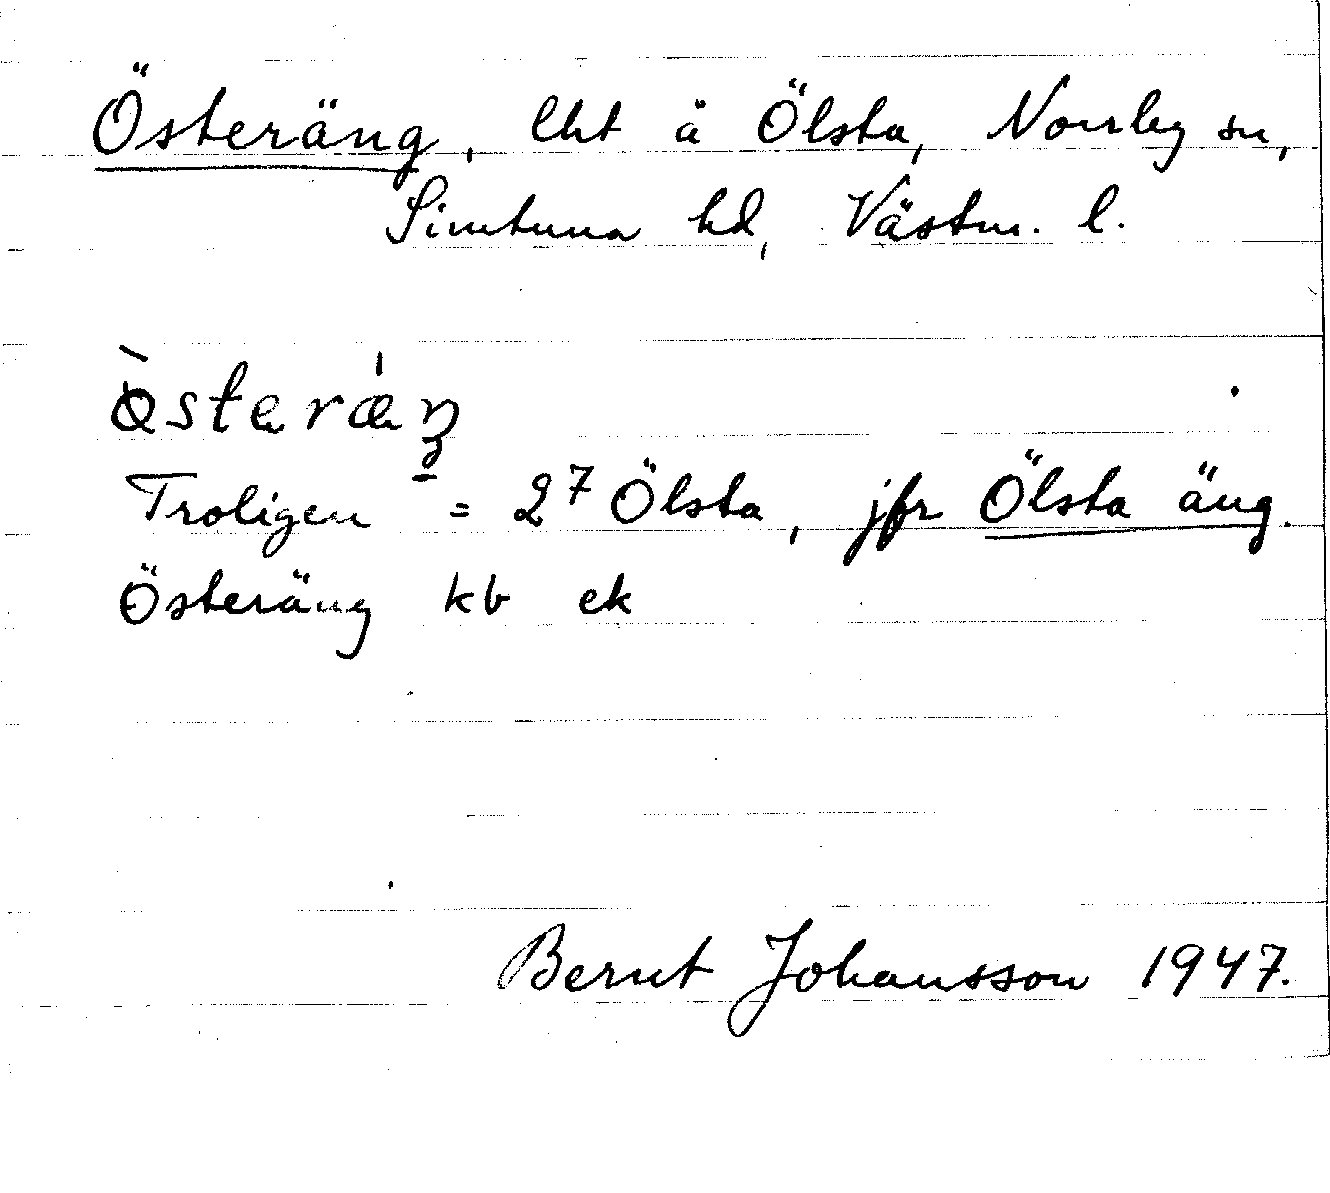 Österäng, lht å Ölsta, Norrby sn,
Simtuna hd, Västm. l.
Troligen = 2⁷ Ölsta, jfr Ölsta äng.
Österäng kb ek
Bernt Johansson 1947.